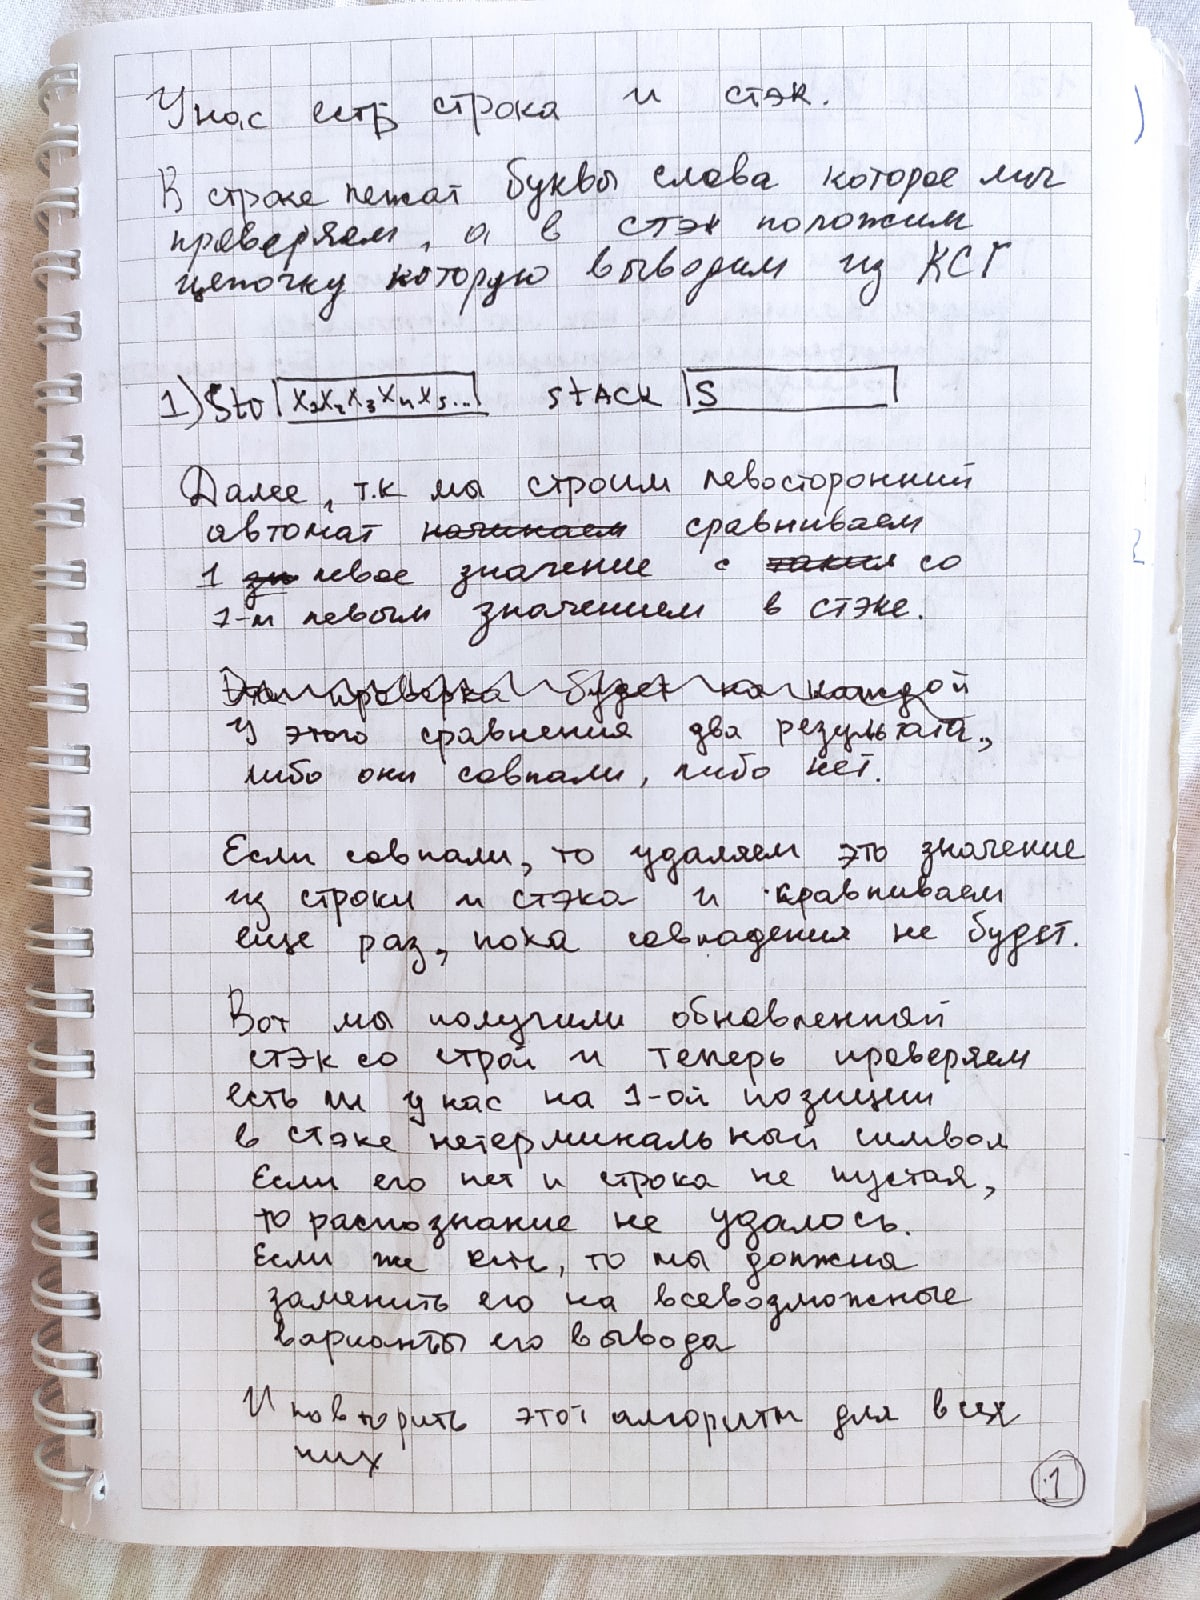 У нас есть строка и стэк.
В строке лежат буквы слова которое мы
проверяем, а в стэк положим
цепочку которую выводим из КСГ
1) Str X₁X₂X₃X₄X₅... STACK S
Далее, т.к мы строим левосторонний
автомат начинаем сравниваем
1 зн левое значение с со
1-м левым значением в стэке.
Эта проверка будет на каждой
У этого сравнения два результата,
либо они совпали, либо нет.
Если совпали, то удаляем это значение
из строки и стэка и сравниваем
еще раз, пока совпадения не будет.
Вот мы получили обновленный
стэк со строй и теперь проверяем
есть ли у нас на 1-ой позиции
в стэке нетерминальный символ
Если его нет и строка не пустая,
то распознание не удалось.
Если же есть, то мы должны
заменить его на всевозможные
варианты его вывода
И повторить этот алгоритм для всех
них
1